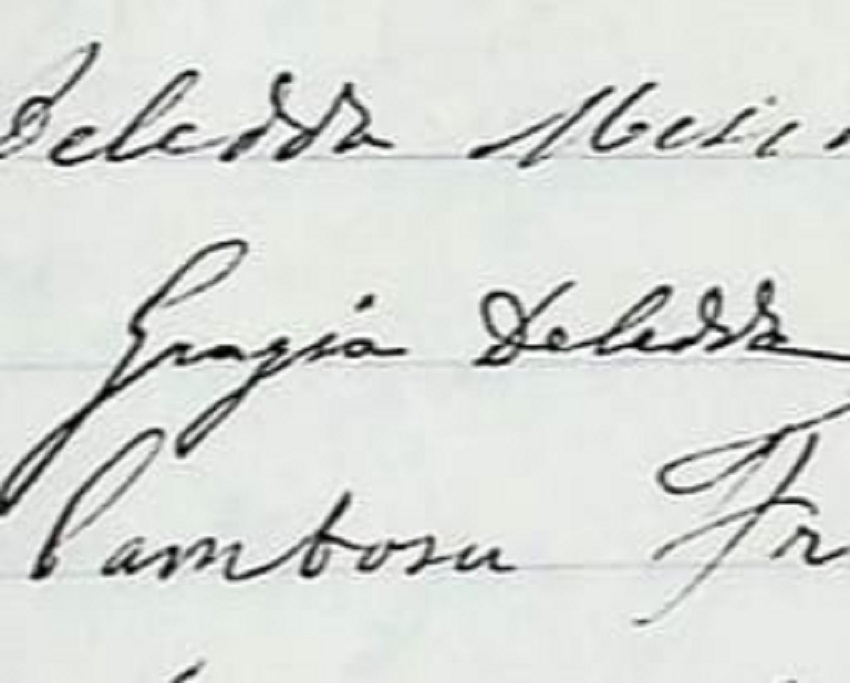 Deledda
Grazia Deledda
Cambosu Fr